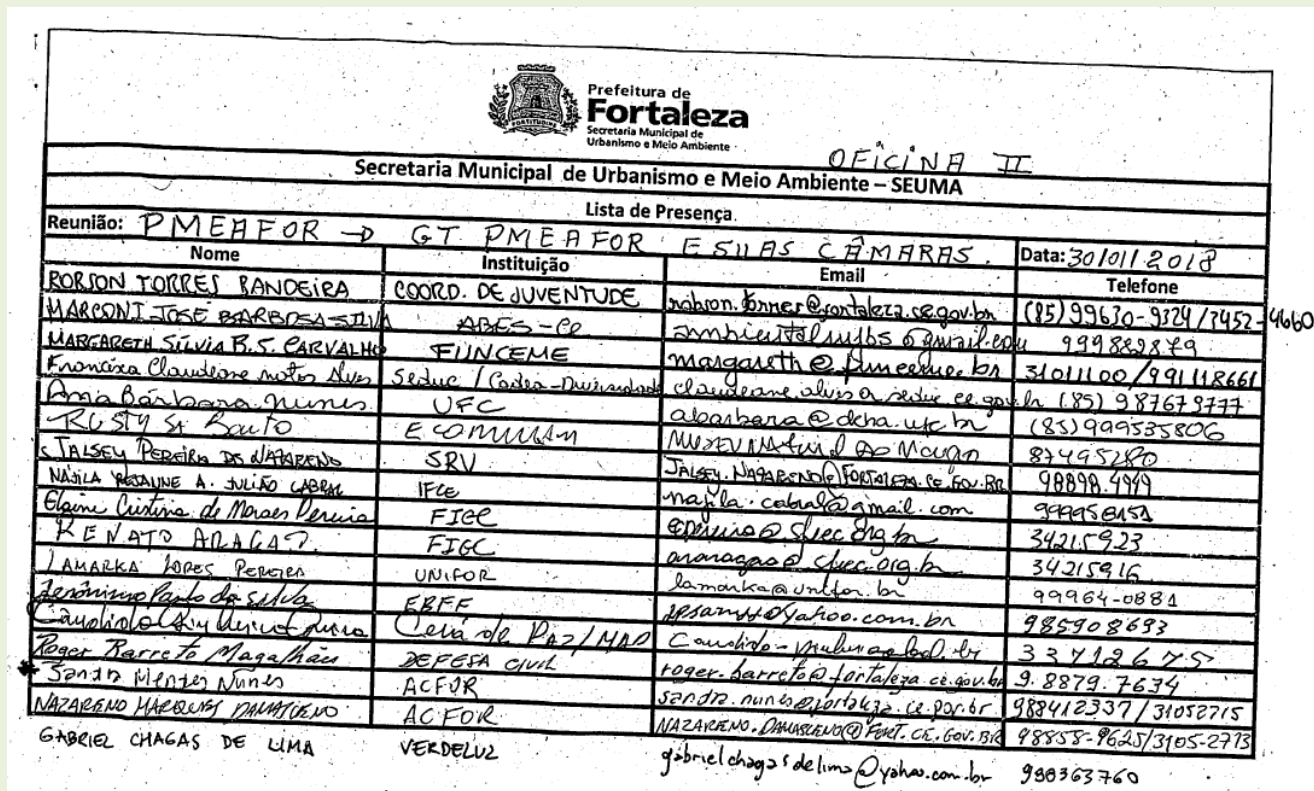 Prefeitura de
Fortaleza
Secretaria Municipal de
Urbanismo e Meio Ambiente
FORTITUDINE
OFICINA II
Secretaria Municipal de Urbanismo e Meio Ambiente – SEUMA
Lista de Presença
Reunião: PMEAFOR → GT PMEAFOR E SUAS CÂMARAS. Data: 30/01/2018
Nome Instituição Email Telefone
ROBSON TORRES BANDEIRA COORD. DE JUVENTUDE robson.torres@fortaleza.ce.gov.br (85) 99630-9324/3452-4660
MARCONI JOSÉ BARBOSA SILVA ABES-CE 999882879
MARGARETH SÍLVIA B.S. CARVALHO FUNCEME margareth@funceme.br 31011100/991118661
Francisca Claudeane Matos Alves Seduc / (85) 987679777
Ana Bárbara Nunes UFC abarbara@deha.ufc.br (85) 999535806
87495280
JALSEY PEREIRA DO NAZARENO SRV JALSEY.NAZARENO@FORTALEZA.CE.GOV.BR 98898.4949
NÁJILA REJANNE A. JULIÃO CABRAL IFCE najila.cabral@gmail.com
Elaine Cristina de Moraes Pereira FIEC 34215923
RENATO ARAGÃO FIEC 34215916
LAMARKA LOPES PEREIRA UNIFOR lamarka@unifor.br 99964-0881
Jerônimo Paulo da Silva EBFF 985908693
33712675
Roger Barreto Magalhães DEFESA CIVIL roger.barreto@fortaleza.ce.gov.br 9.8879.7634
* Sandra Mentes Nunes ACFOR sandra.nunes@fortaleza.ce.gov.br 988412337/31052715
NAZARENO MARQUES DAMASCENO ACFOR NAZARENO.DAMASCENO@FORT.CE.GOV.BR 98858-9625/3105-2713
GABRIEL CHAGAS DE LIMA VERDELUZ gabrielchagasdelima@yahoo.com.br 998363760